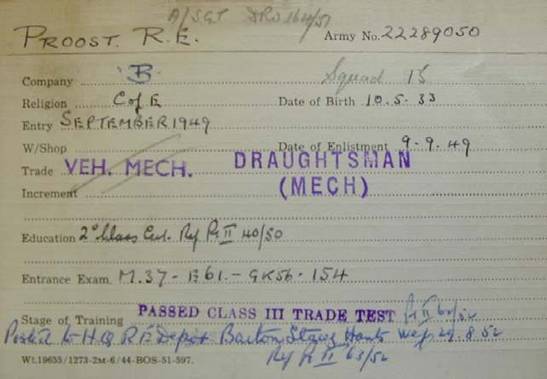 A/SGT DRO 164/51
PROOST. R.E. Army No. 22289050
Company B Squad 15
Religion C of E Date of Birth 10.5.33
Entry SEPTEMBER 1949
W/Shop Date of Enlistment 9-9-49
Trade VEH. MECH. DRAUGHTSMAN
Increment (MECH)
Education 2nd Class Cert. Ref Pt II 40/50
Entrance Exam. M.37 - E61. - GK56 - 154
Stage of Training PASSED CLASS III TRADE TEST Pt II 60/52
Posted to H.Q. R.E Depot Barton Stacey Hants wef 29.8.52
Wt.19655/1273-2M-6/44-BOS-51-597. Ref Pt II 63/52